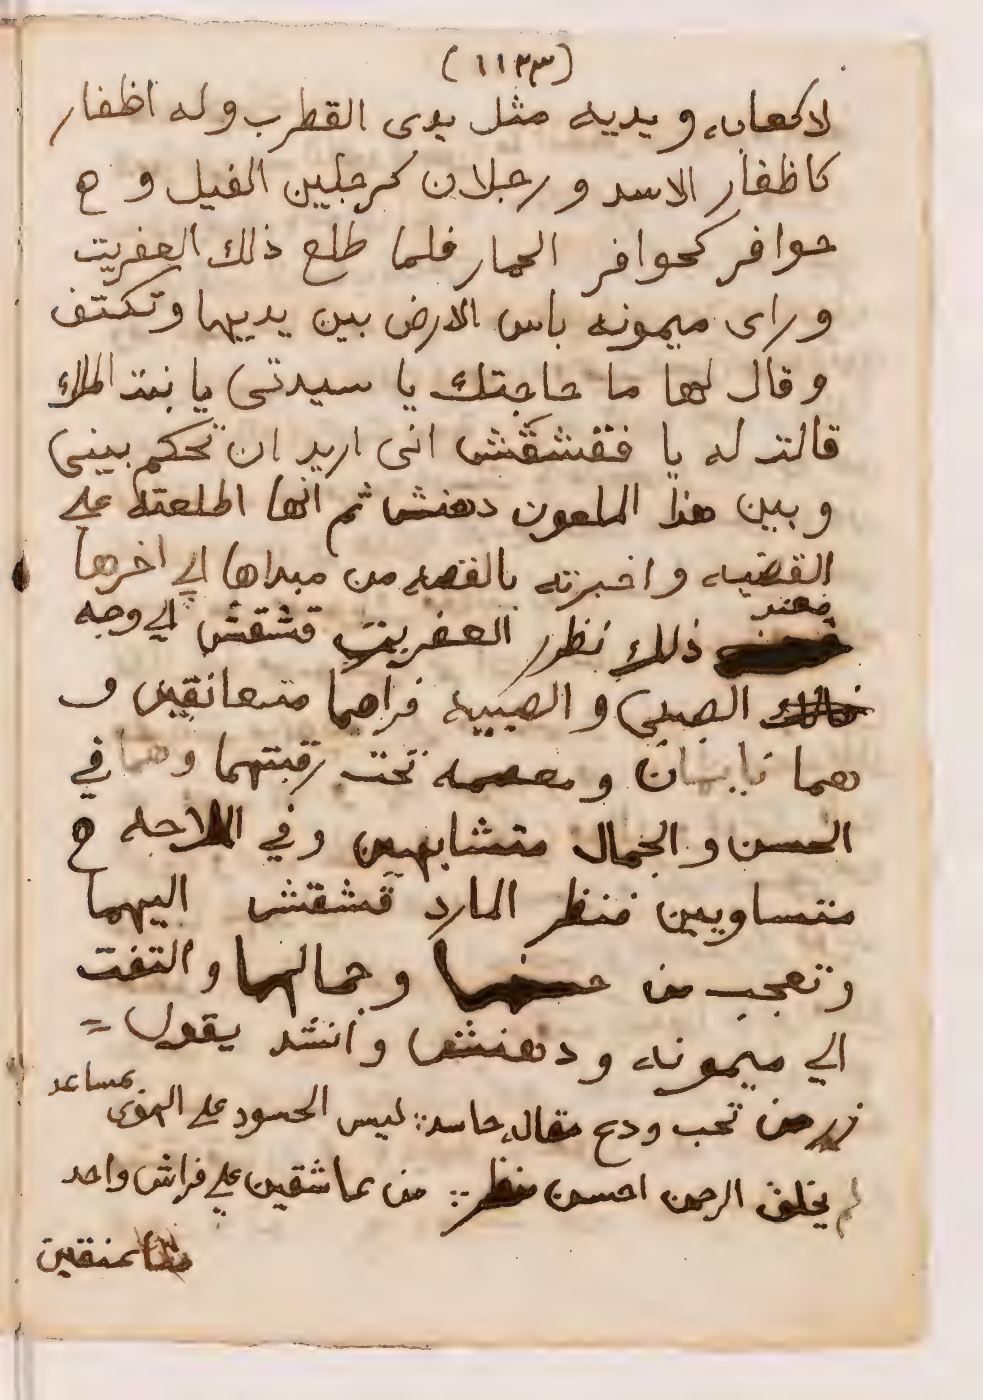 (١١٣٣)
لاكعابه ويديه مثل يدى القطرب وله اظفار
كاظفار الاسد و رجلان كرجلين الفيل و ح
حوافر كحوافر الحمار فلما طلع ذلك العفريت
وراى ميمونه باس الارض بين يديها وتكتف
وقال لها ما حاجتك يا سيدتى يا بنت الملك
قالت له يا فقشقش انى اريد ان تحكم بينى
وبين هذا الملعون دهنش ثم انها اطلعته على
القضيه واخبرته بالقصه من مبداها الي اخرها
فعند
ذلك نظر العفريت قشقش الي وجه
الصبى والصبيه فراهما متعانقين و
هما نايمان ومعصمه تحت رقبتهما وهما في
الحسن والجمال متشابهين وفي الملاحه ح
متساويين فنظر المارد قشقش اليهما
وتعجب من حسنهما وجمالهما والتفت
الي ميمونه ودهنش وانشد يقول =
زر من تحب ودع مقاله حاسد :: ليس الحسود على الهوى بمساعد
لم يخلق الرحمن احسن منظر :: من عاشقين على فراش واحد